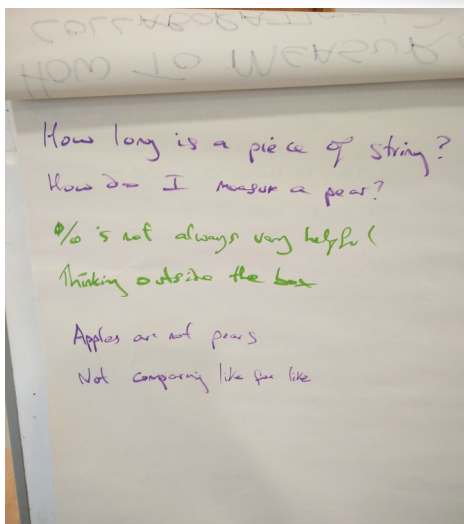 HOW TO MEASUR
COLLABORATION
How long is a piece of string?
How do I measure a pear?
% is not always very helpful
Thinking outside the box
Apples are not pears
Not comparing like for like